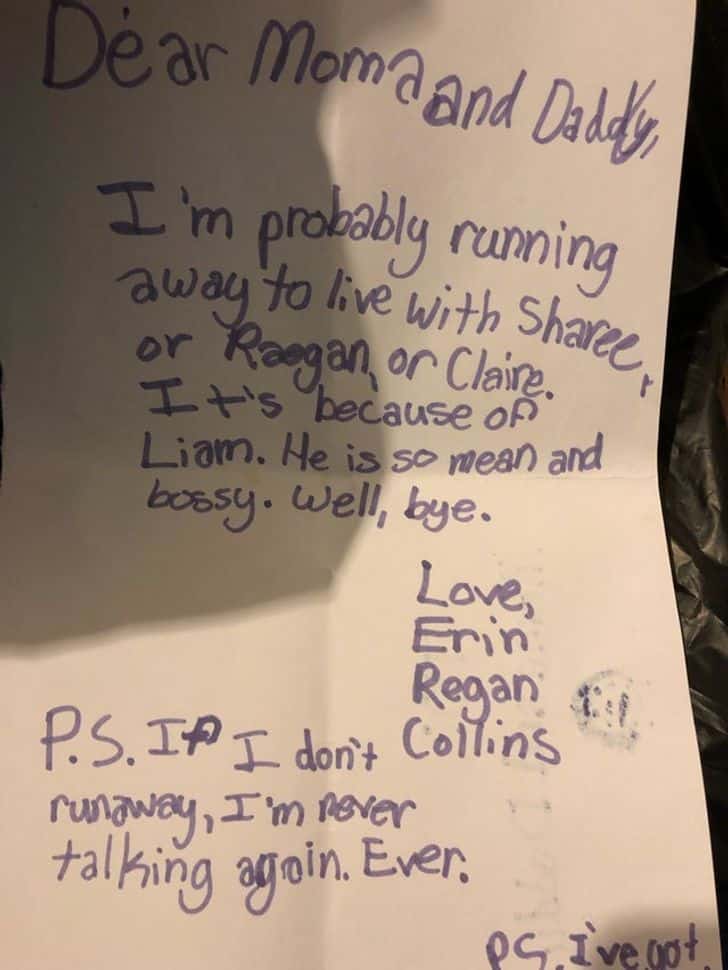 Dear Moma and Daddy,
I'm probably running
away to live with Sharee,
or Raegan, or Claire.
It's because of
Liam. He is so mean and
bossy. Well, bye.
Love,
Erin
Regan
Collins
P.S. If I don't
runaway, I'm never
talking again. Ever.
PS. I've got